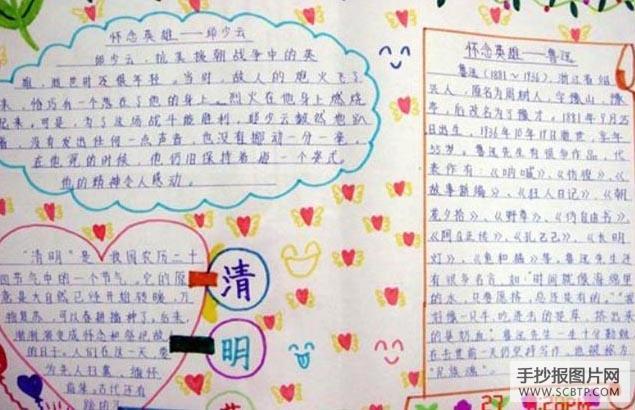 怀念英雄——邱少云
邱少云,抗美援朝战争中的英
雄,他世时还很年轻。当时,敌人的炮火飞了
来,恰巧有一个落在了他的身上。烈火在他身上燃烧
起来。可是,为了这场战斗能胜利,邱少云毅然地趴
着,没有发出任何一点声音,也没有挪动一分一毫。
在他死的时候,他仍旧保持着这一个姿式。
他的精神令人感动。
“清明”是我国农历二十
四节气中的一个节气。它的原
意是大自然已经开始转暖,万
物复苏,可以春耕播种了,后来
渐渐演变成怀念和祭祀故
的日子。人们在这一天,要
为先人扫墓,缅怀
古代还有
清
明
怀念英雄——鲁迅
鲁迅(1881~1936),浙江省绍
兴人,原名为周树人,字豫山、豫
亭,后改名为了豫才。1881年9月25
日出生,1936年10月19日逝世,享年
55岁。鲁迅先生有很多作品,代
表作有:《呐喊》、《彷徨》、《
故事新编》、《狂人日记》、《朝
花夕拾》、《野草》、《伪自由书》、
《阿Q正传》、《孔乙己》、《长明
灯》、《鱼和腊》等,鲁迅先生还
有很多名言,如:“时间就像海绵里
的水,只要愿挤,总还是有的”,“
好像一只牛,吃进去的是草,挤出来
的是奶血”,鲁迅先生一生十分勤奋
在去世前一天仍坚持写作,他被称为
“民族魂”。
手抄报图片网
WWW.SCBTP.COM